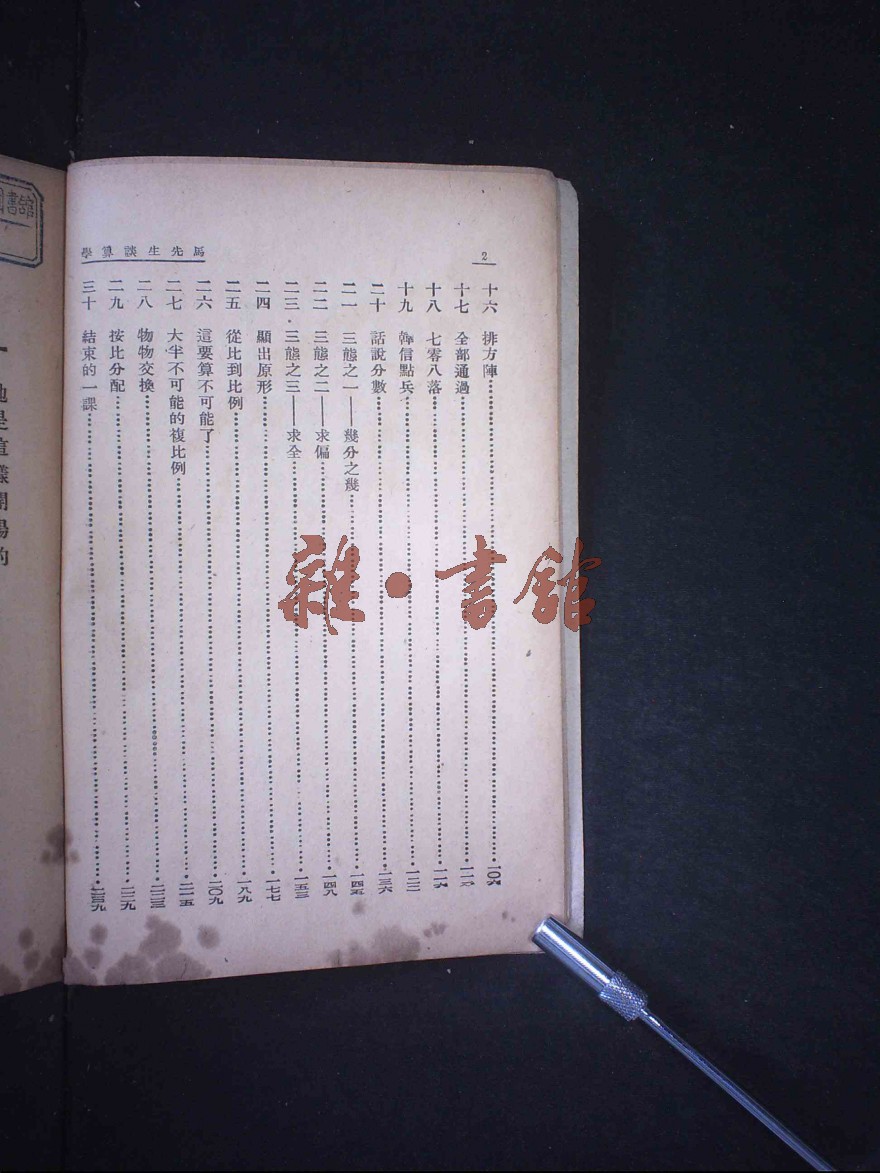 馬先生談算學
2
十六 排方陣 一〇六
十七 全部通過
十八 七零八落 一一六
十九 韓信點兵 一二二
二十 話說分數 一三六
二一 三態之一——幾分之幾 一四五
二二 三態之二——求偏 一四八
二三 三態之三——求全 一五三
二四 顯出原形 一七七
二五 從比到比例 一八九
二六 這要算不可能了 二〇九
二七 大半不可能的複比例 二一五
二八 物物交換 二二三
二九 按比分配 二二九
三十 結束的一課 二三九
一 他是這樣開場的
書館
雜·書館